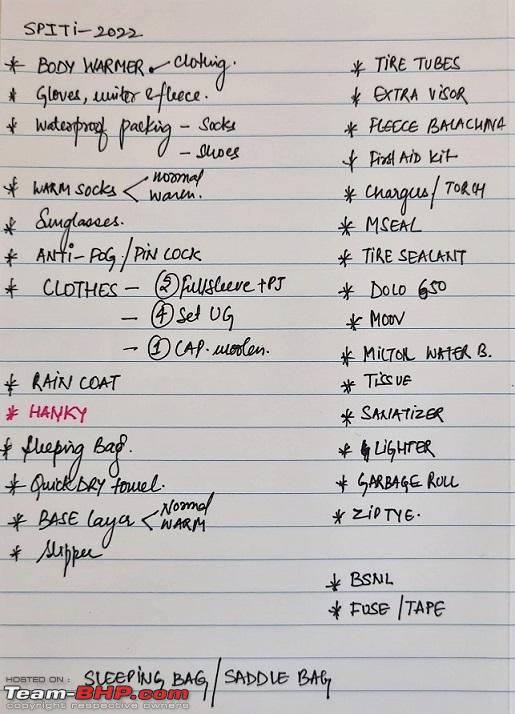 SPITI-2022
* BODY WARMER - Clothing.
* Gloves, winter & fleece.
* Waterproof packing - Socks
- Shoes
* WARM SOCKS < Normal
Warm.
* Sunglasses.
* ANTI-FOG/PIN LOCK
* CLOTHES - ② Fullsleeve + PJ
- ④ Set UG
- ① CAP. woolen.
* RAIN COAT
* HANKY
* Sleeping Bag.
* Quick DRY towel.
* BASE layer < Normal
WARM
* Slipper
* TIRE TUBES
* EXTRA VISOR
* FLEECE BALACLAVA
* First AID Kit
* Charger/TORCH
* MSEAL
* TIRE SEALANT
* DOLO 650
* MOOV
* MILTON WATER B.
* TISSUE
* SANATIZER
* LIGHTER
* GARBAGE ROLL
* ZIP TYE.
* BSNL
* FUSE/TAPE
SLEEPING BAG/SADDLE BAG
HOSTED ON :
Team-BHP.com
copyright respective owners